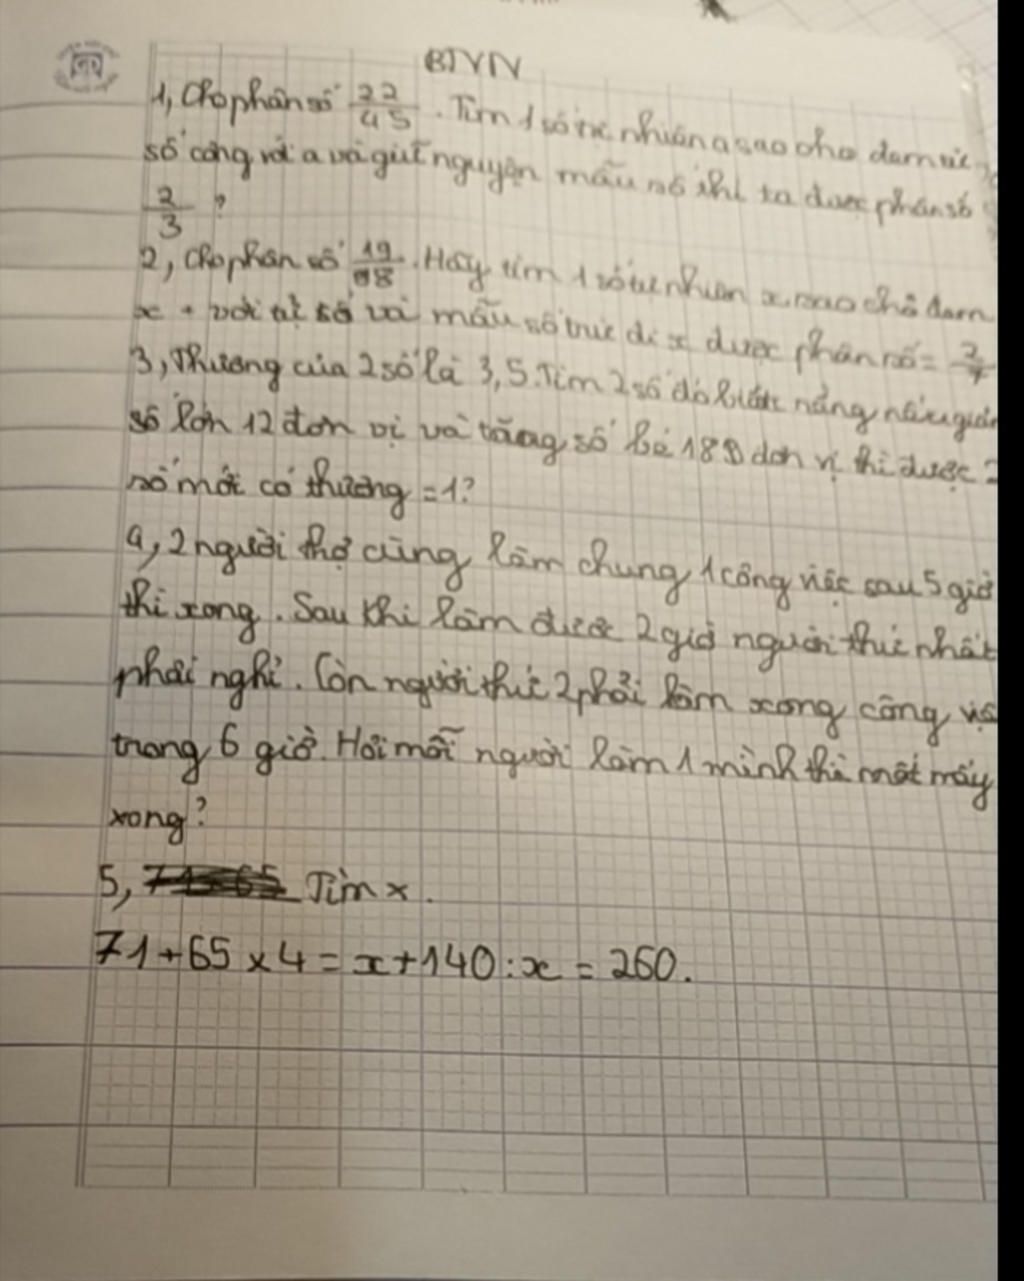 BTVN
1, Cho phân số 22/45 . Tìm 1 số tự nhiên a sao cho đem tử
số cộng với a và giữ nguyên mẫu số thì ta được phân số
2/3 ?
2, Cho phân số 19/ . Hãy tìm 1 số tự nhiên x sao cho đem
x + với tử số và mẫu số trừ đi x được phân số =
3, Thương của 2 số là 3,5. Tìm 2 số đó biết rằng nếu
số lớn 12 đơn vị và tăng số bé đơn vị thì được 2
số mới có thương =1?
4, 2 người thợ cùng làm chung 1 công việc sau 5 giờ
thì xong. Sau khi làm được 2 giờ người thứ nhất
phải nghỉ. Còn người thứ 2 phải làm xong công
trong 6 giờ. Hỏi mỗi người làm 1 mình thì mất mấy
xong?
5, Tìm x.
71+65 x 4 = x+140:x = 260.